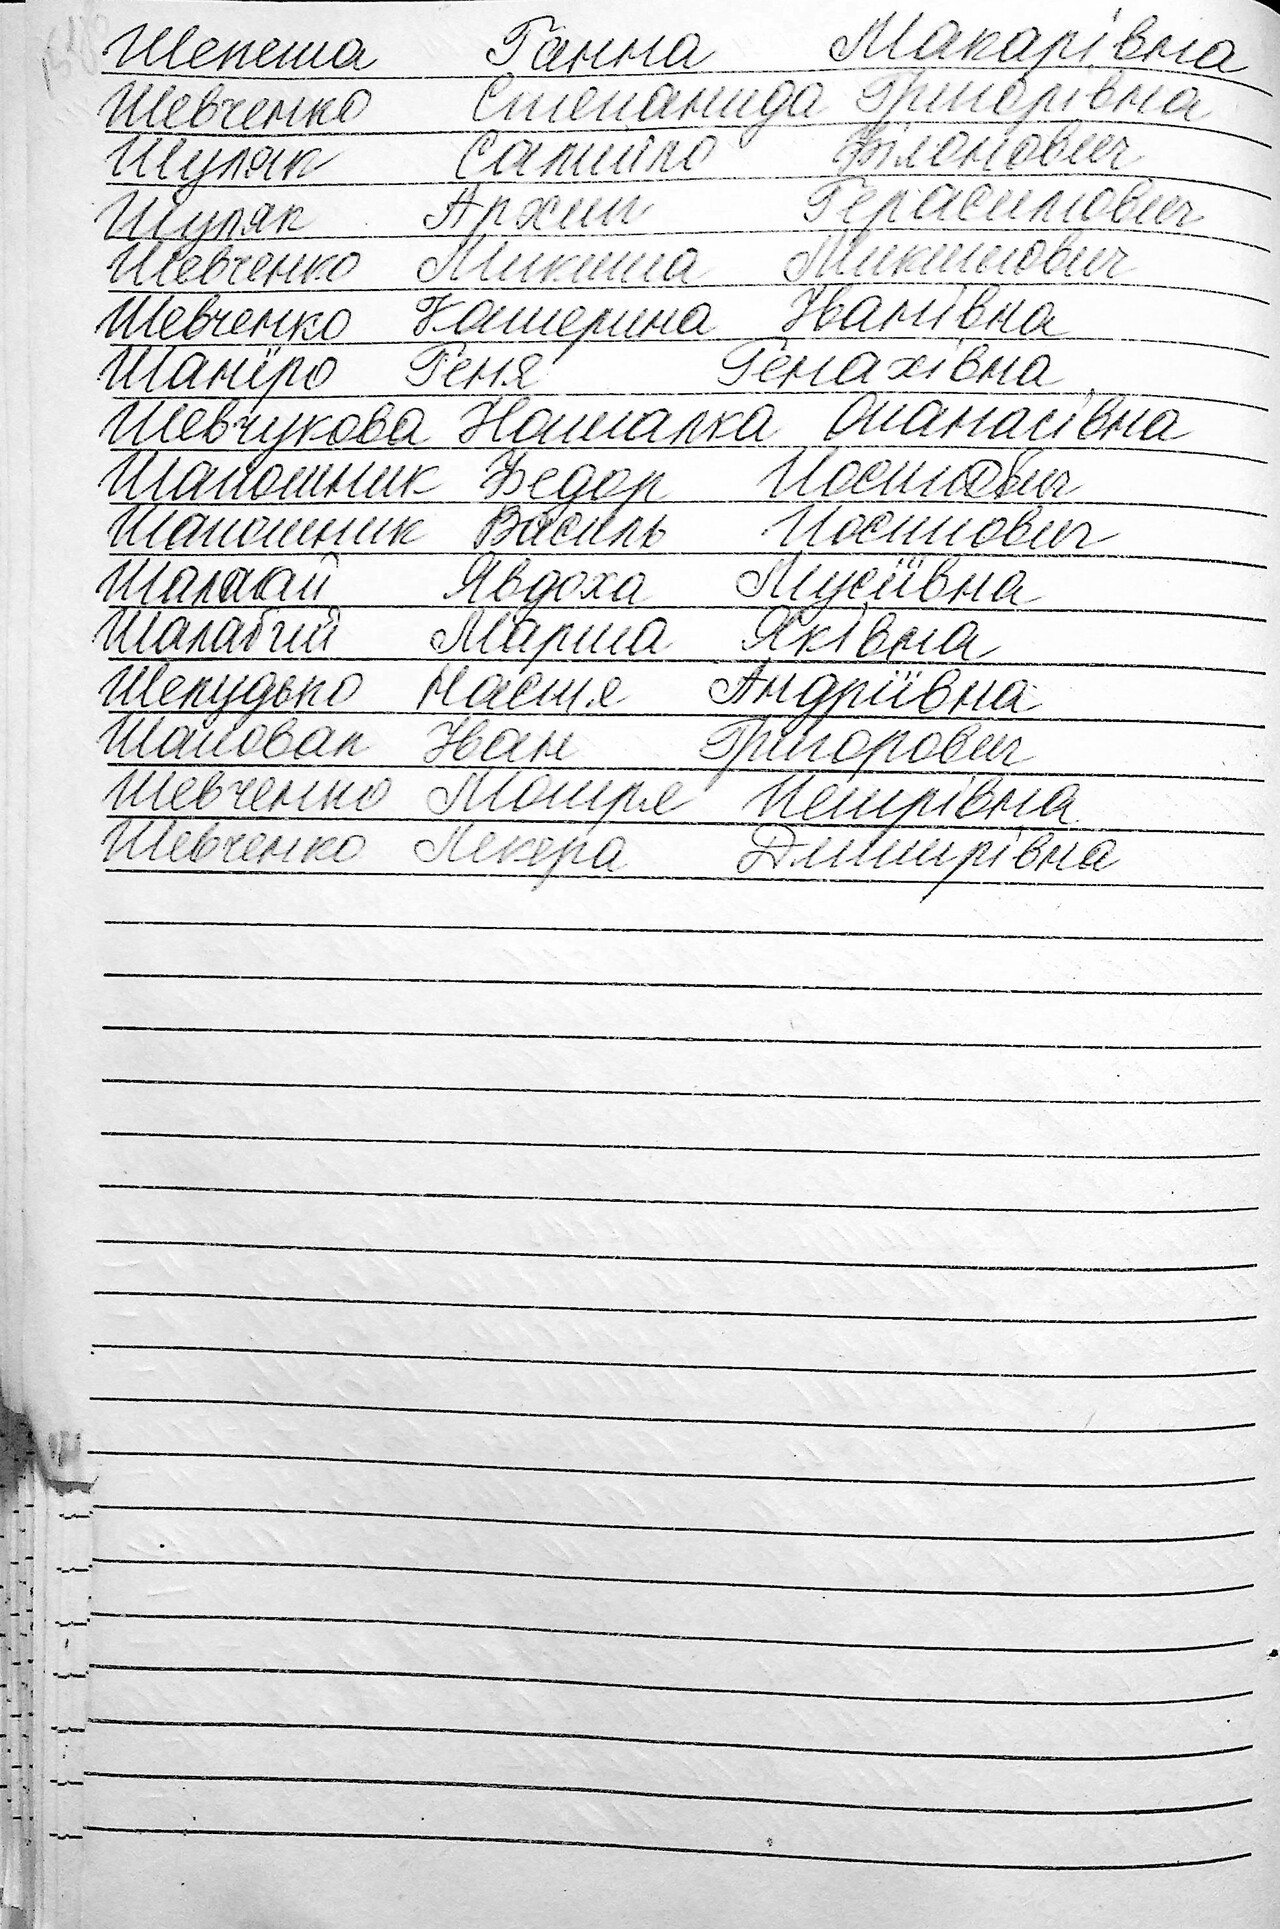 Шепета Ганна Макарівна
Шевченко Степанида Григорівна
Шуляк Самійло Філонович
Шуляк Архип Герасимович
Шевченко Микита Микитович
Шевченко Катерина Іванівна
Шапіро Геня Генахівна
Шевчукова Наталка Опанасівна
Шапошник Федор Йосипович
Шапошник Василь Йосипович
Явдоха Мусіївна
Марта Яківна
Шепудько Настя Андріївна
Шаповал Іван Григорович
Шевченко Мотря Петрівна
Шевченко Лекера Дмитрівна